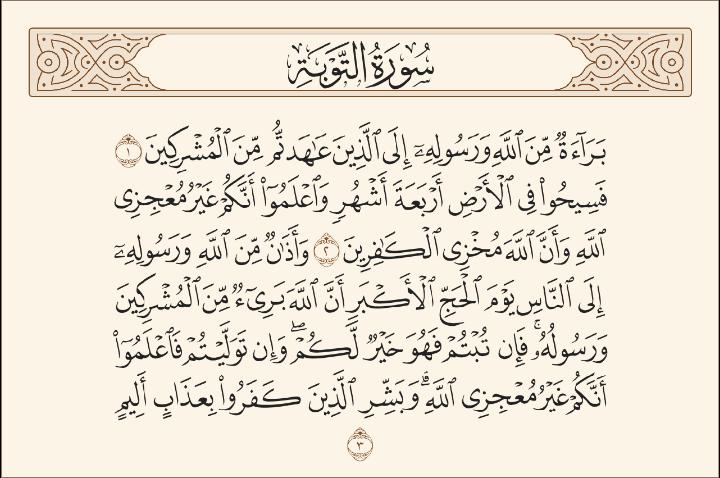 سُورَةُ التَّوْبَةِ
بَرَآءَةٌ مِّنَ ٱللَّهِ وَرَسُولِهِۦٓ إِلَى ٱلَّذِينَ عَٰهَدتُّم مِّنَ ٱلْمُشْرِكِينَ ١
فَسِيحُوا۟ فِى ٱلْأَرْضِ أَرْبَعَةَ أَشْهُرٍ وَٱعْلَمُوٓا۟ أَنَّكُمْ غَيْرُ مُعْجِزِى
ٱللَّهِ وَأَنَّ ٱللَّهَ مُخْزِى ٱلْكَٰفِرِينَ ٢ وَأَذَٰنٌ مِّنَ ٱللَّهِ وَرَسُولِهِۦٓ
إِلَى ٱلنَّاسِ يَوْمَ ٱلْحَجِّ ٱلْأَكْبَرِ أَنَّ ٱللَّهَ بَرِىٓءٌ مِّنَ ٱلْمُشْرِكِينَ
وَرَسُولُهُۥ ۚ فَإِن تُبْتُمْ فَهُوَ خَيْرٌ لَّكُمْ ۖ وَإِن تَوَلَّيْتُمْ فَٱعْلَمُوٓا۟
أَنَّكُمْ غَيْرُ مُعْجِزِى ٱللَّهِ ۗ وَبَشِّرِ ٱلَّذِينَ كَفَرُوا۟ بِعَذَابٍ أَلِيمٍ
٣